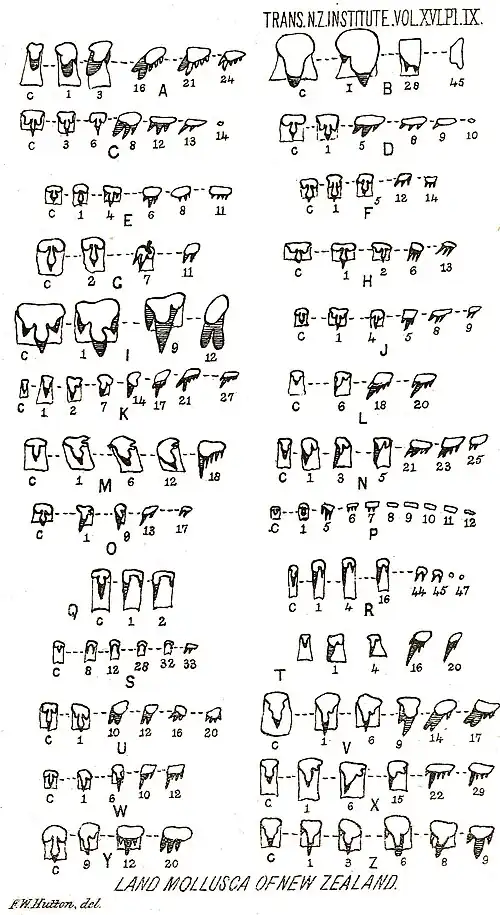 TRANS.N.Z.INSTITUTE.VOL.XVI.Pl.IX.
C 1 3 16 21 24
A
C 1 28 45
B
C 3 6 8 12 13 14
C
C 1 5 8 9 10
D
C 1 4 6 8 11
E
C 1 5 12 14
F
C 2 7 11
G
C 1 2 6 13
H
C 1 9 12
I
C 1 4 5 8 9
J
C 1 2 7 14 17 21 27
K
C 6 18 20
L
C 1 6 12 18
M
C 1 3 5 21 23 25
N
C 1 9 13 17
O
C 1 5 6 7 8 9 10 11 12
P
Q
C 1 2
C 1 4 16 44 45 47
R
C 8 12 28 32 33
S
1 4 16 20
T
C 1 10 12 16 20
U
C 1 6 9 14 17
V
C 1 6 10 12
W
C 1 6 15 22 29
X
C 9 12 20
Y
C 1 3 6 8 9
Z
LAND MOLLUSCA OF NEW ZEALAND.
F.W.Hutton, del.